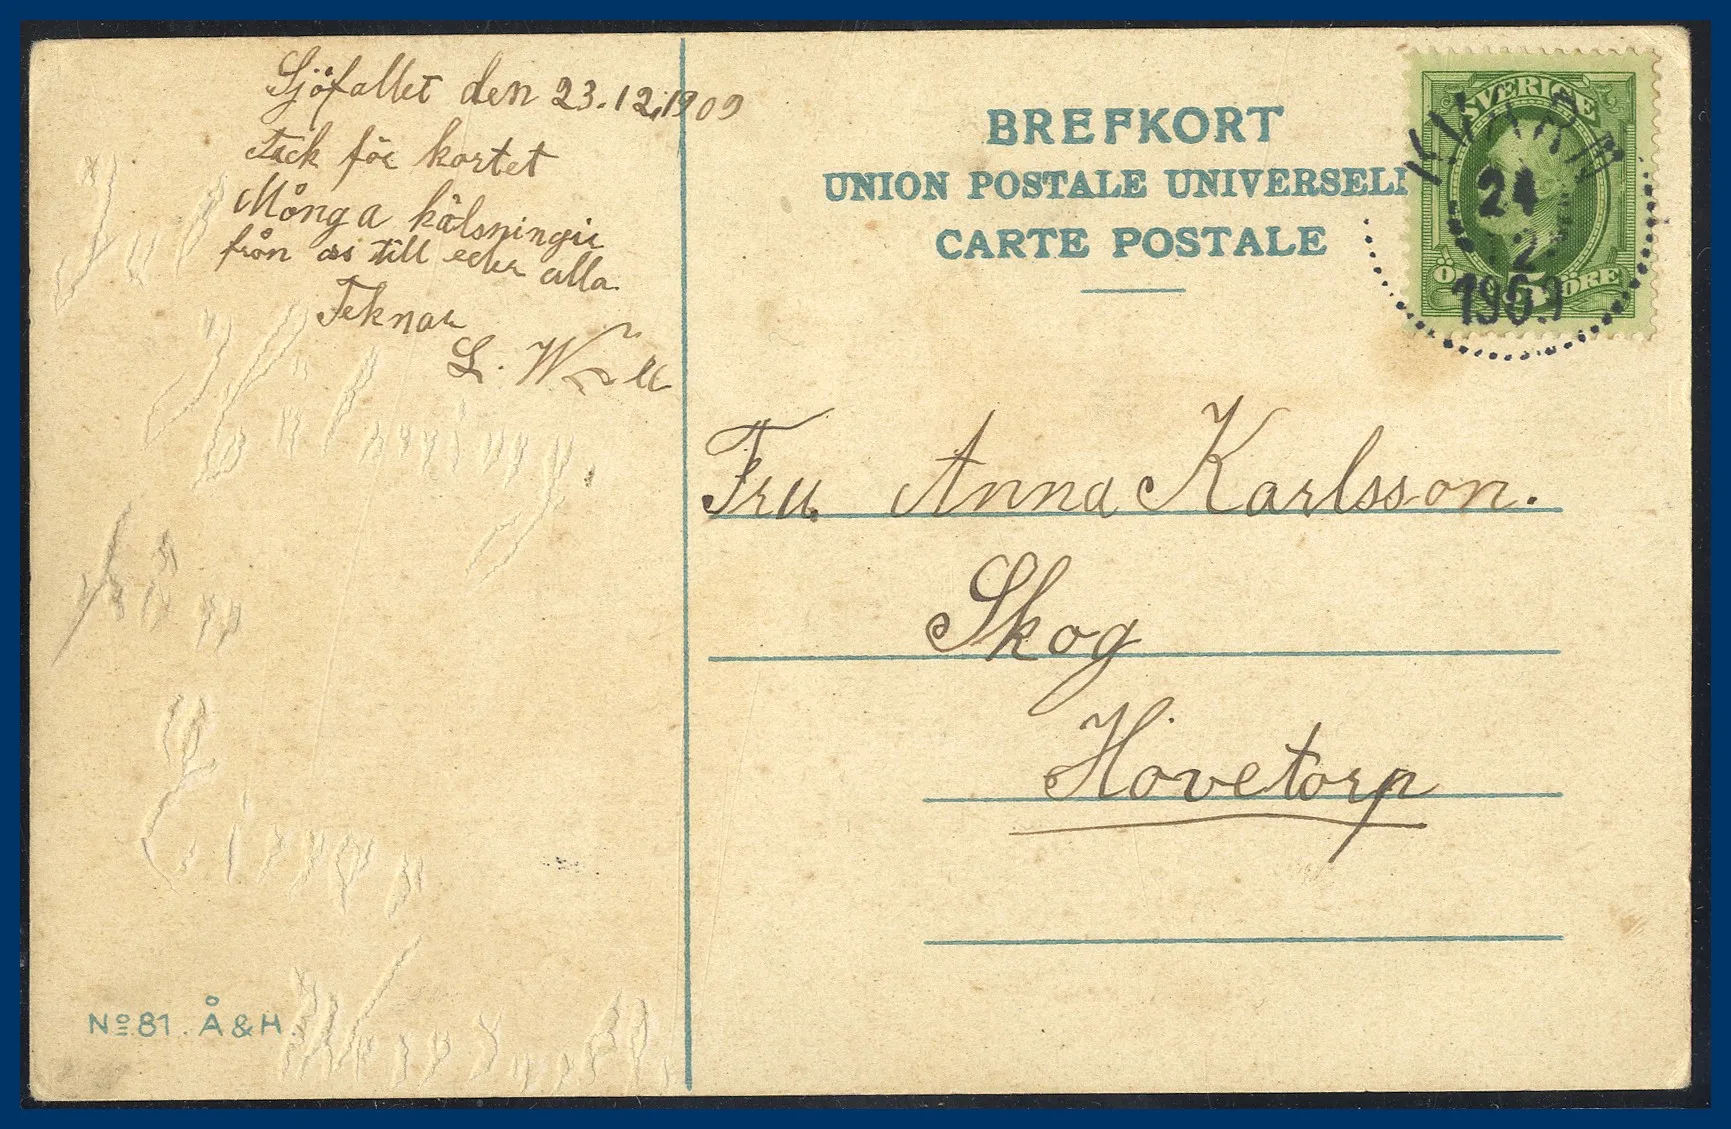 Sjöfallet den 23.12.1909
Tack för kortet
Många hälsningar
från oss till eder alla
Teknar
L. W
BREFKORT
UNION POSTALE UNIVERSELL
CARTE POSTALE
SVERIGE
ÖRE
24
12
1909
Fru Anna Karlsson.
Skog
Hovetorp
No 81. Å & H.